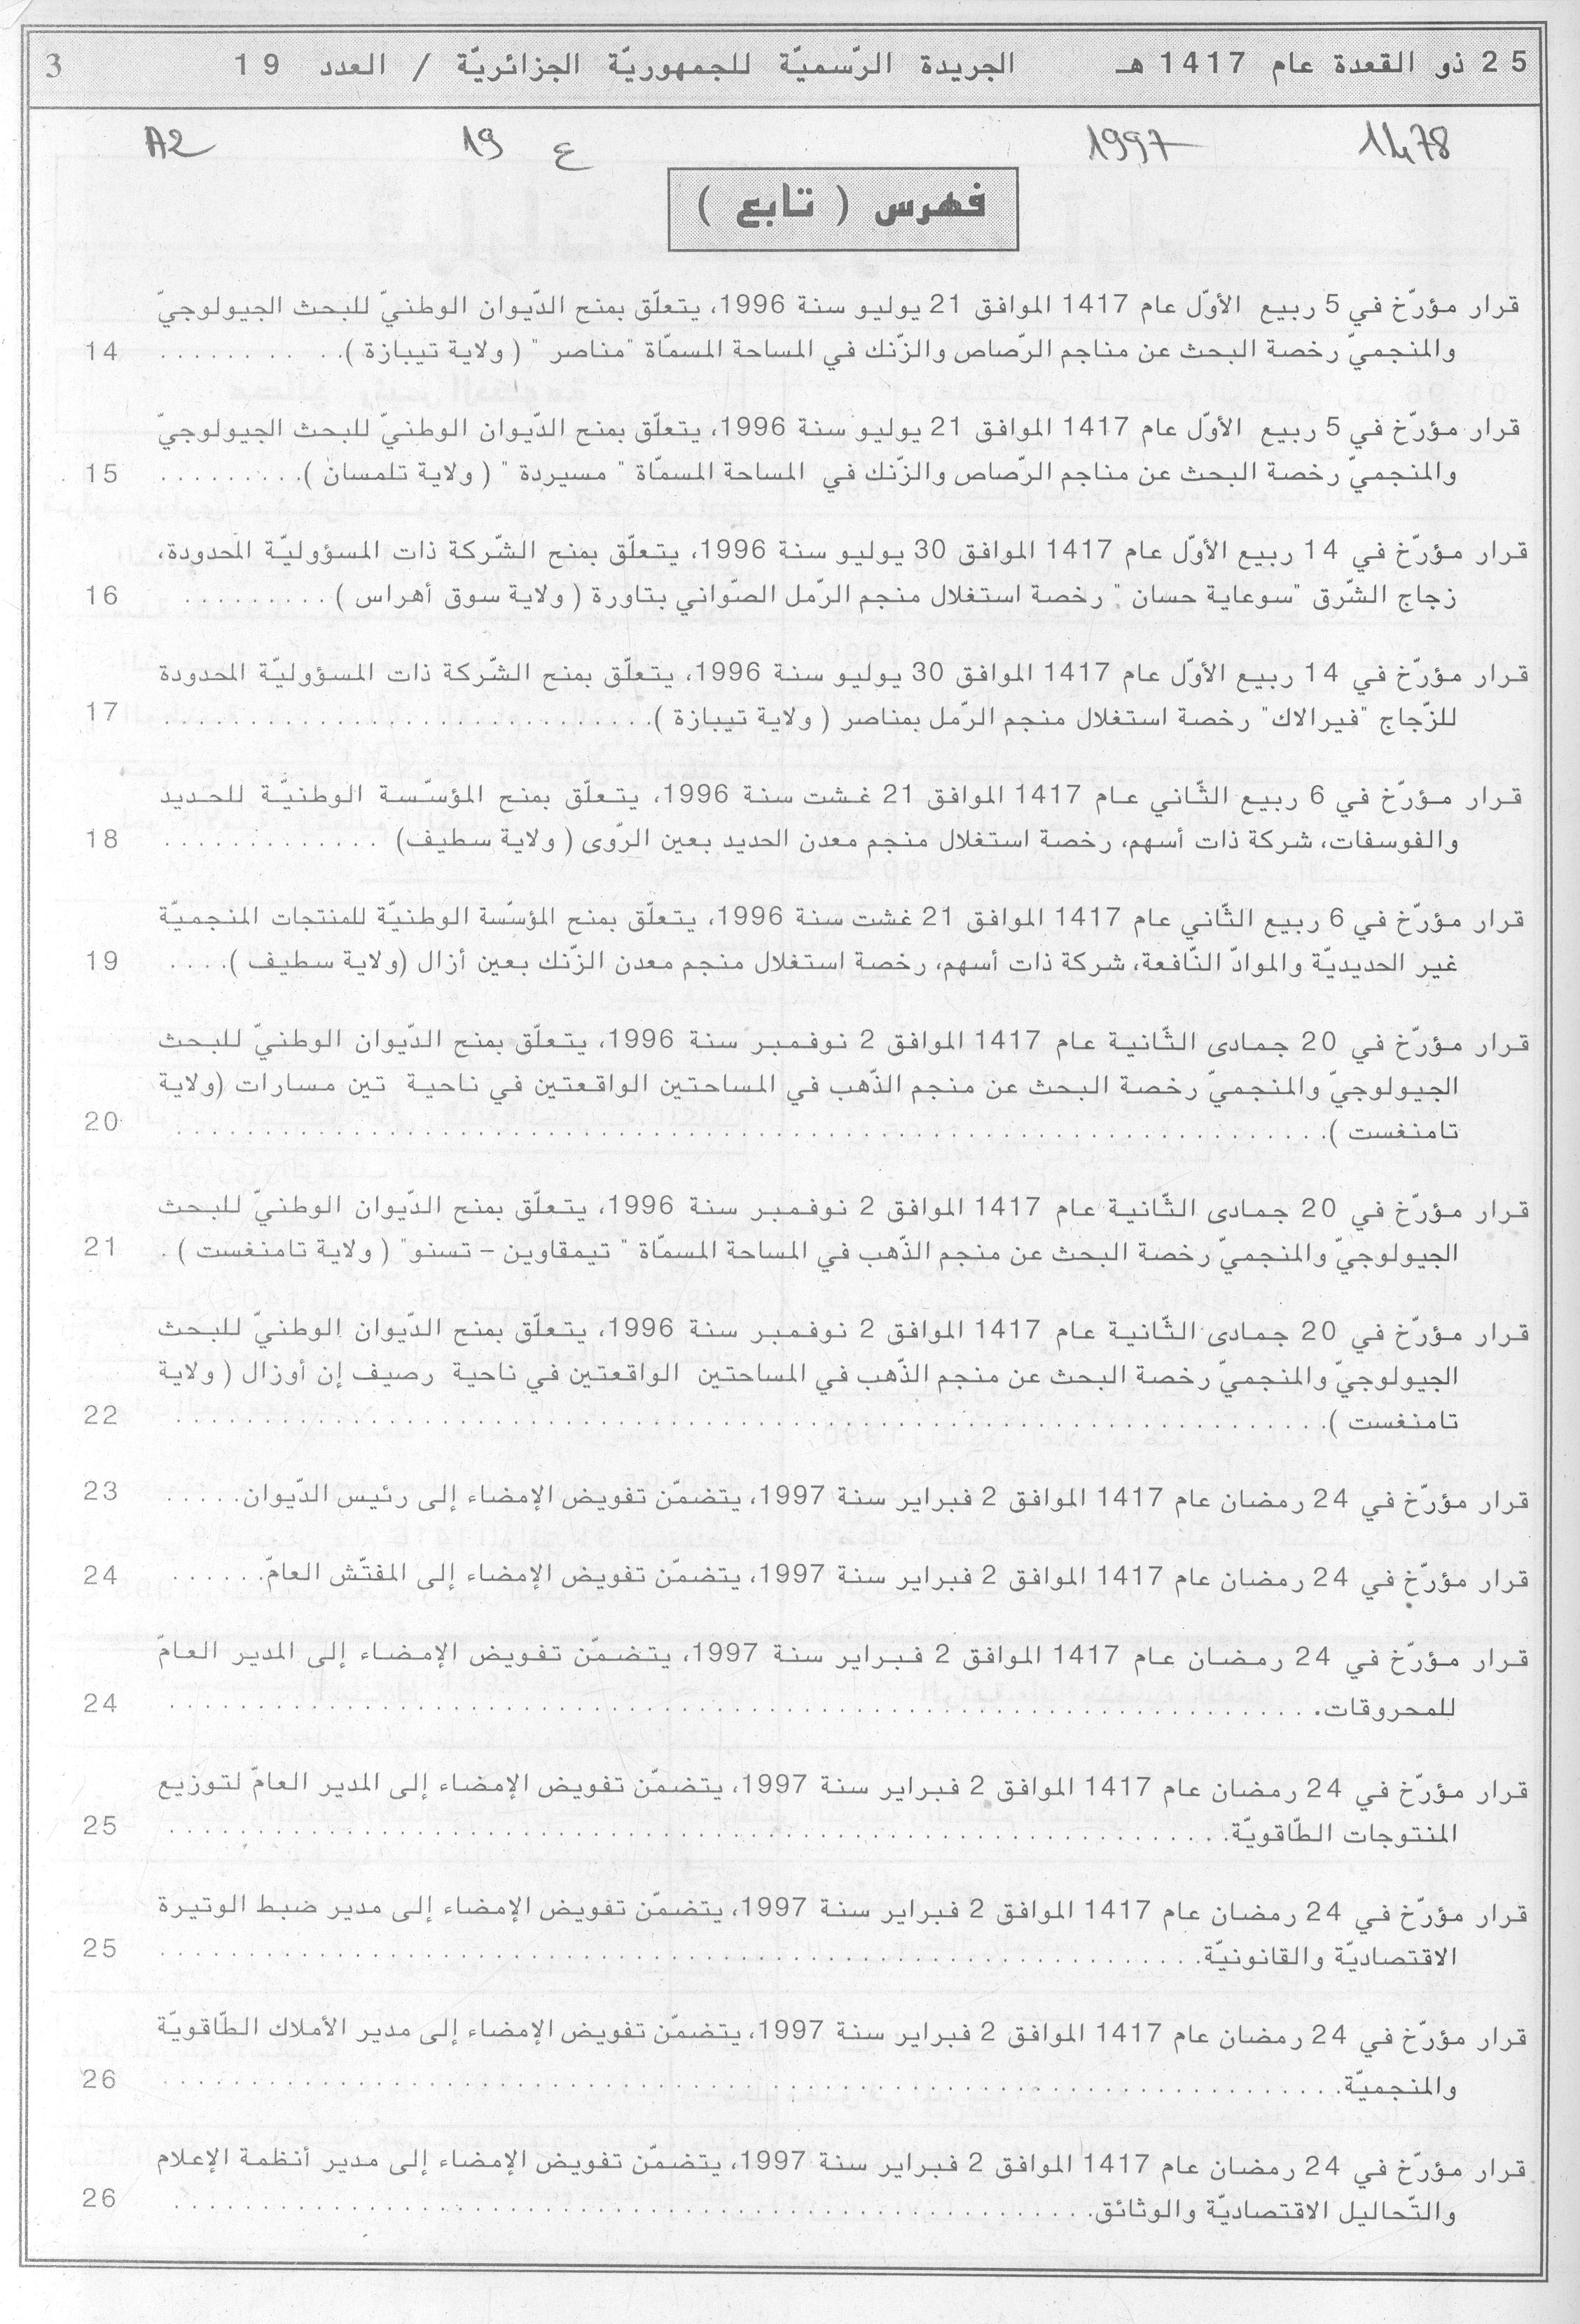 25 ذو القعدة عام 1417 هـ الجريدة الرّسميّة للجمهوريّة الجزائريّة / العدد 19 3
1478 1997 ع 19 A2
فهرس ( تابع )
قرار مؤرّخ في 5 ربيع الأوّل عام 1417 الموافق 21 يوليو سنة 1996، يتعلّق بمنح الدّيوان الوطنيّ للبحث الجيولوجيّ
والمنجميّ رخصة البحث عن مناجم الرّصاص والزّنك في المساحة المسمّاة "مناصر " ( ولاية تيبازة ). . . . . . . . . . 14
قرار مؤرّخ في 5 ربيع الأوّل عام 1417 الموافق 21 يوليو سنة 1996، يتعلّق بمنح الدّيوان الوطنيّ للبحث الجيولوجيّ
والمنجميّ رخصة البحث عن مناجم الرّصاص والزّنك في المساحة المسمّاة " مسيردة " ( ولاية تلمسان ). . . . . . . . . 15
قرار مؤرّخ في 14 ربيع الأوّل عام 1417 الموافق 30 يوليو سنة 1996، يتعلّق بمنح الشّركة ذات المسؤوليّة المحدودة،
زجاج الشّرق "سوعاية حسان " رخصة استغلال منجم الرّمل الصّواني بتاورة ( ولاية سوق أهراس ) . . . . . . . . . 16
قرار مؤرّخ في 14 ربيع الأوّل عام 1417 الموافق 30 يوليو سنة 1996، يتعلّق بمنح الشّركة ذات المسؤوليّة المحدودة
للزّجاج "فيرالاك" رخصة استغلال منجم الرّمل بمناصر ( ولاية تيبازة ). . . . . . . . . . . . . . . . . . . . . . . . . . 17
قرار مؤرّخ في 6 ربيع الثّاني عام 1417 الموافق 21 غشت سنة 1996، يتعلّق بمنح المؤسّسة الوطنيّة للحديد
والفوسفات، شركة ذات أسهم، رخصة استغلال منجم معدن الحديد بعين الرّوى ( ولاية سطيف) . . . . . . . . . . . . . 18
قرار مؤرّخ في 6 ربيع الثّاني عام 1417 الموافق 21 غشت سنة 1996، يتعلّق بمنح المؤسّسة الوطنيّة للمنتجات المنجميّة
غير الحديديّة والموادّ النّافعة، شركة ذات أسهم، رخصة استغلال منجم معدن الزّنك بعين أزال (ولاية سطيف ). . . . 19
قرار مؤرّخ في 20 جمادى الثّانية عام 1417 الموافق 2 نوفمبر سنة 1996، يتعلّق بمنح الدّيوان الوطنيّ للبحث
الجيولوجيّ والمنجميّ رخصة البحث عن منجم الذّهب في المساحتين الواقعتين في ناحية تين مسارات (ولاية
تامنغست ). . . . . . . . . . . . . . . . . . . . . . . . . . . . . . . . . . . . . . . . . . . . . . . . . . . . . . 20
قرار مؤرّخ في 20 جمادى الثّانية عام 1417 الموافق 2 نوفمبر سنة 1996، يتعلّق بمنح الدّيوان الوطنيّ للبحث
الجيولوجيّ والمنجميّ رخصة البحث عن منجم الذّهب في المساحة المسمّاة " تيمقاوين – تسنو" ( ولاية تامنغست ) . 21
قرار مؤرّخ في 20 جمادى الثّانية عام 1417 الموافق 2 نوفمبر سنة 1996، يتعلّق بمنح الدّيوان الوطنيّ للبحث
الجيولوجيّ والمنجميّ رخصة البحث عن منجم الذّهب في المساحتين الواقعتين في ناحية رصيف إن أوزال ( ولاية
تامنغست ). . . . . . . . . . . . . . . . . . . . . . . . . . . . . . . . . . . . . . . . . . . . . . . . . . . . . . 22
قرار مؤرّخ في 24 رمضان عام 1417 الموافق 2 فبراير سنة 1997، يتضمّن تفويض الإمضاء إلى رئيس الدّيوان. . . . . 23
قرار مؤرّخ في 24 رمضان عام 1417 الموافق 2 فبراير سنة 1997، يتضمّن تفويض الإمضاء إلى المفتّش العامّ. . . . . . 24
قرار مؤرّخ في 24 رمضان عام 1417 الموافق 2 فبراير سنة 1997، يتضمّن تفويض الإمضاء إلى المدير العامّ
للمحروقات. . . . . . . . . . . . . . . . . . . . . . . . . . . . . . . . . . . . . . . . . . . . . . . . . . . . . . 24
قرار مؤرّخ في 24 رمضان عام 1417 الموافق 2 فبراير سنة 1997، يتضمّن تفويض الإمضاء إلى المدير العامّ لتوزيع
المنتوجات الطّاقويّة. . . . . . . . . . . . . . . . . . . . . . . . . . . . . . . . . . . . . . . . . . . . . . . . . 25
قرار مؤرّخ في 24 رمضان عام 1417 الموافق 2 فبراير سنة 1997، يتضمّن تفويض الإمضاء إلى مدير ضبط الوتيرة
الاقتصاديّة والقانونيّة. . . . . . . . . . . . . . . . . . . . . . . . . . . . . . . . . . . . . . . . . . . . . . . . 25
قرار مؤرّخ في 24 رمضان عام 1417 الموافق 2 فبراير سنة 1997، يتضمّن تفويض الإمضاء إلى مدير الأملاك الطّاقويّة
والمنجميّة. . . . . . . . . . . . . . . . . . . . . . . . . . . . . . . . . . . . . . . . . . . . . . . . . . . . . . 26
قرار مؤرّخ في 24 رمضان عام 1417 الموافق 2 فبراير سنة 1997، يتضمّن تفويض الإمضاء إلى مدير أنظمة الإعلام
والتّحاليل الاقتصاديّة والوثائق. . . . . . . . . . . . . . . . . . . . . . . . . . . . . . . . . . . . . . . . . . . 26